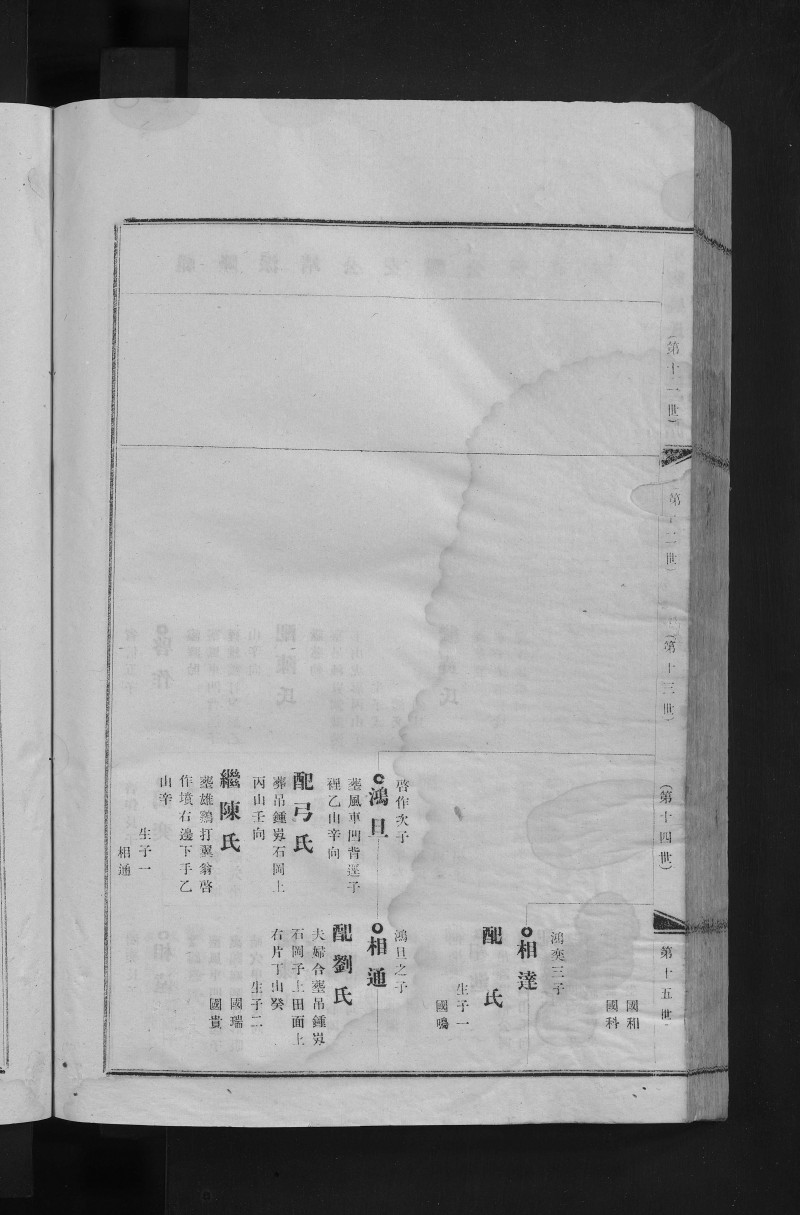 (第十一世)
(第十二世)
(第十三世)
(第十四世)
第十五世
啓作次子
鴻旦
塟風車門背逕子
裡乙山辛向
配弓氏
葬吊鍾嵏石岡上
丙山壬向
繼陳氏
塟雄鷄打翼翁啓
作墳右邊下手乙
山辛
生子一
相通
國和
國科
鴻奕三子
相達
配 氏
生子一
國鳴
鴻旦之子
相通
配劉氏
夫婦合塟吊鍾嵏
石岡子上田面上
右片丁山癸
生子二
國瑞
國貴